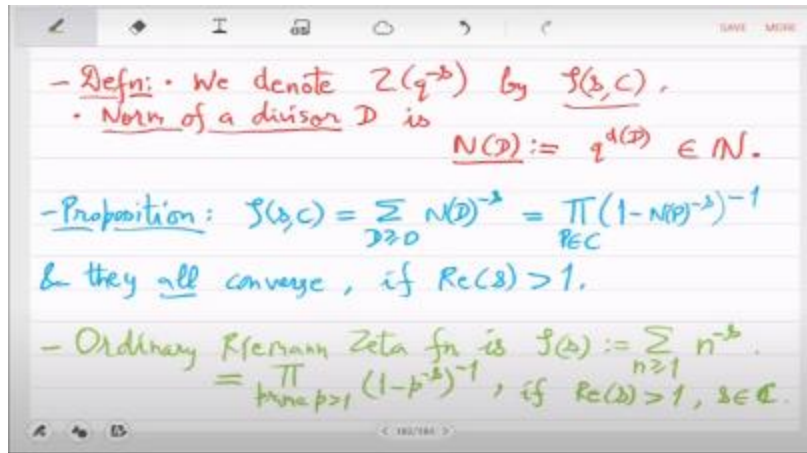 SAVE MORE
- Defn: · We denote Z(q^-s) by ζ(s,C).
· Norm of a divisor D is
N(D) := q^d(D) ∈ ℕ.
- Proposition: ζ(s,C) = Σ_{D≥0} N(D)^-s = Π_{P∈C} (1-N(P)^-s)^-1
& they all converge, if Re(s) > 1.
- Ordinary Riemann Zeta fn is ζ(s) := Σ_{n≥1} n^-s.
= Π_{prime p>1} (1-p^-s)^-1, if Re(s) > 1, s∈ℂ.